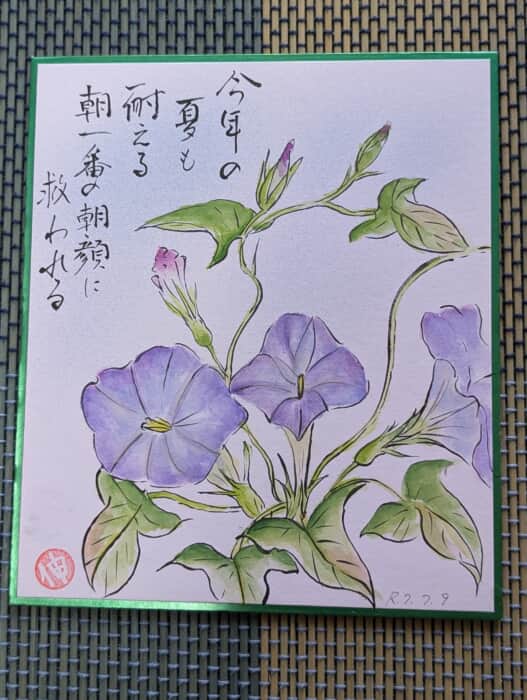 今年の
夏も
耐える
朝一番の朝顔に
救われる
R7.7.9